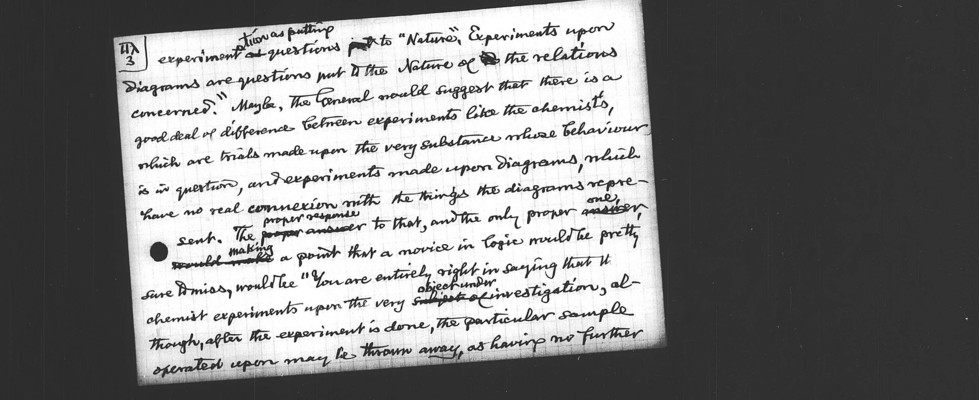 ΠΛ
3
experimentation as putting questions to "Nature". Experiments upon
diagrams are questions put to the Nature of the relations
concerned." Maybe, the General would suggest that there is a
good deal of difference between experiments like the chemist's,
which are trials made upon the very substance whose behaviour
is in question, and experiments made upon diagrams, which
have no real connexion with the things the diagrams repre-
sent. The proper response to that, and the only proper one,
making a point that a novice in logic would be pretty
sure to miss, would be "You are entirely right in saying that the
chemist experiments upon the very object under investigation, al-
though, after the experiment is done, the particular sample
operated upon may be thrown away, as having no further